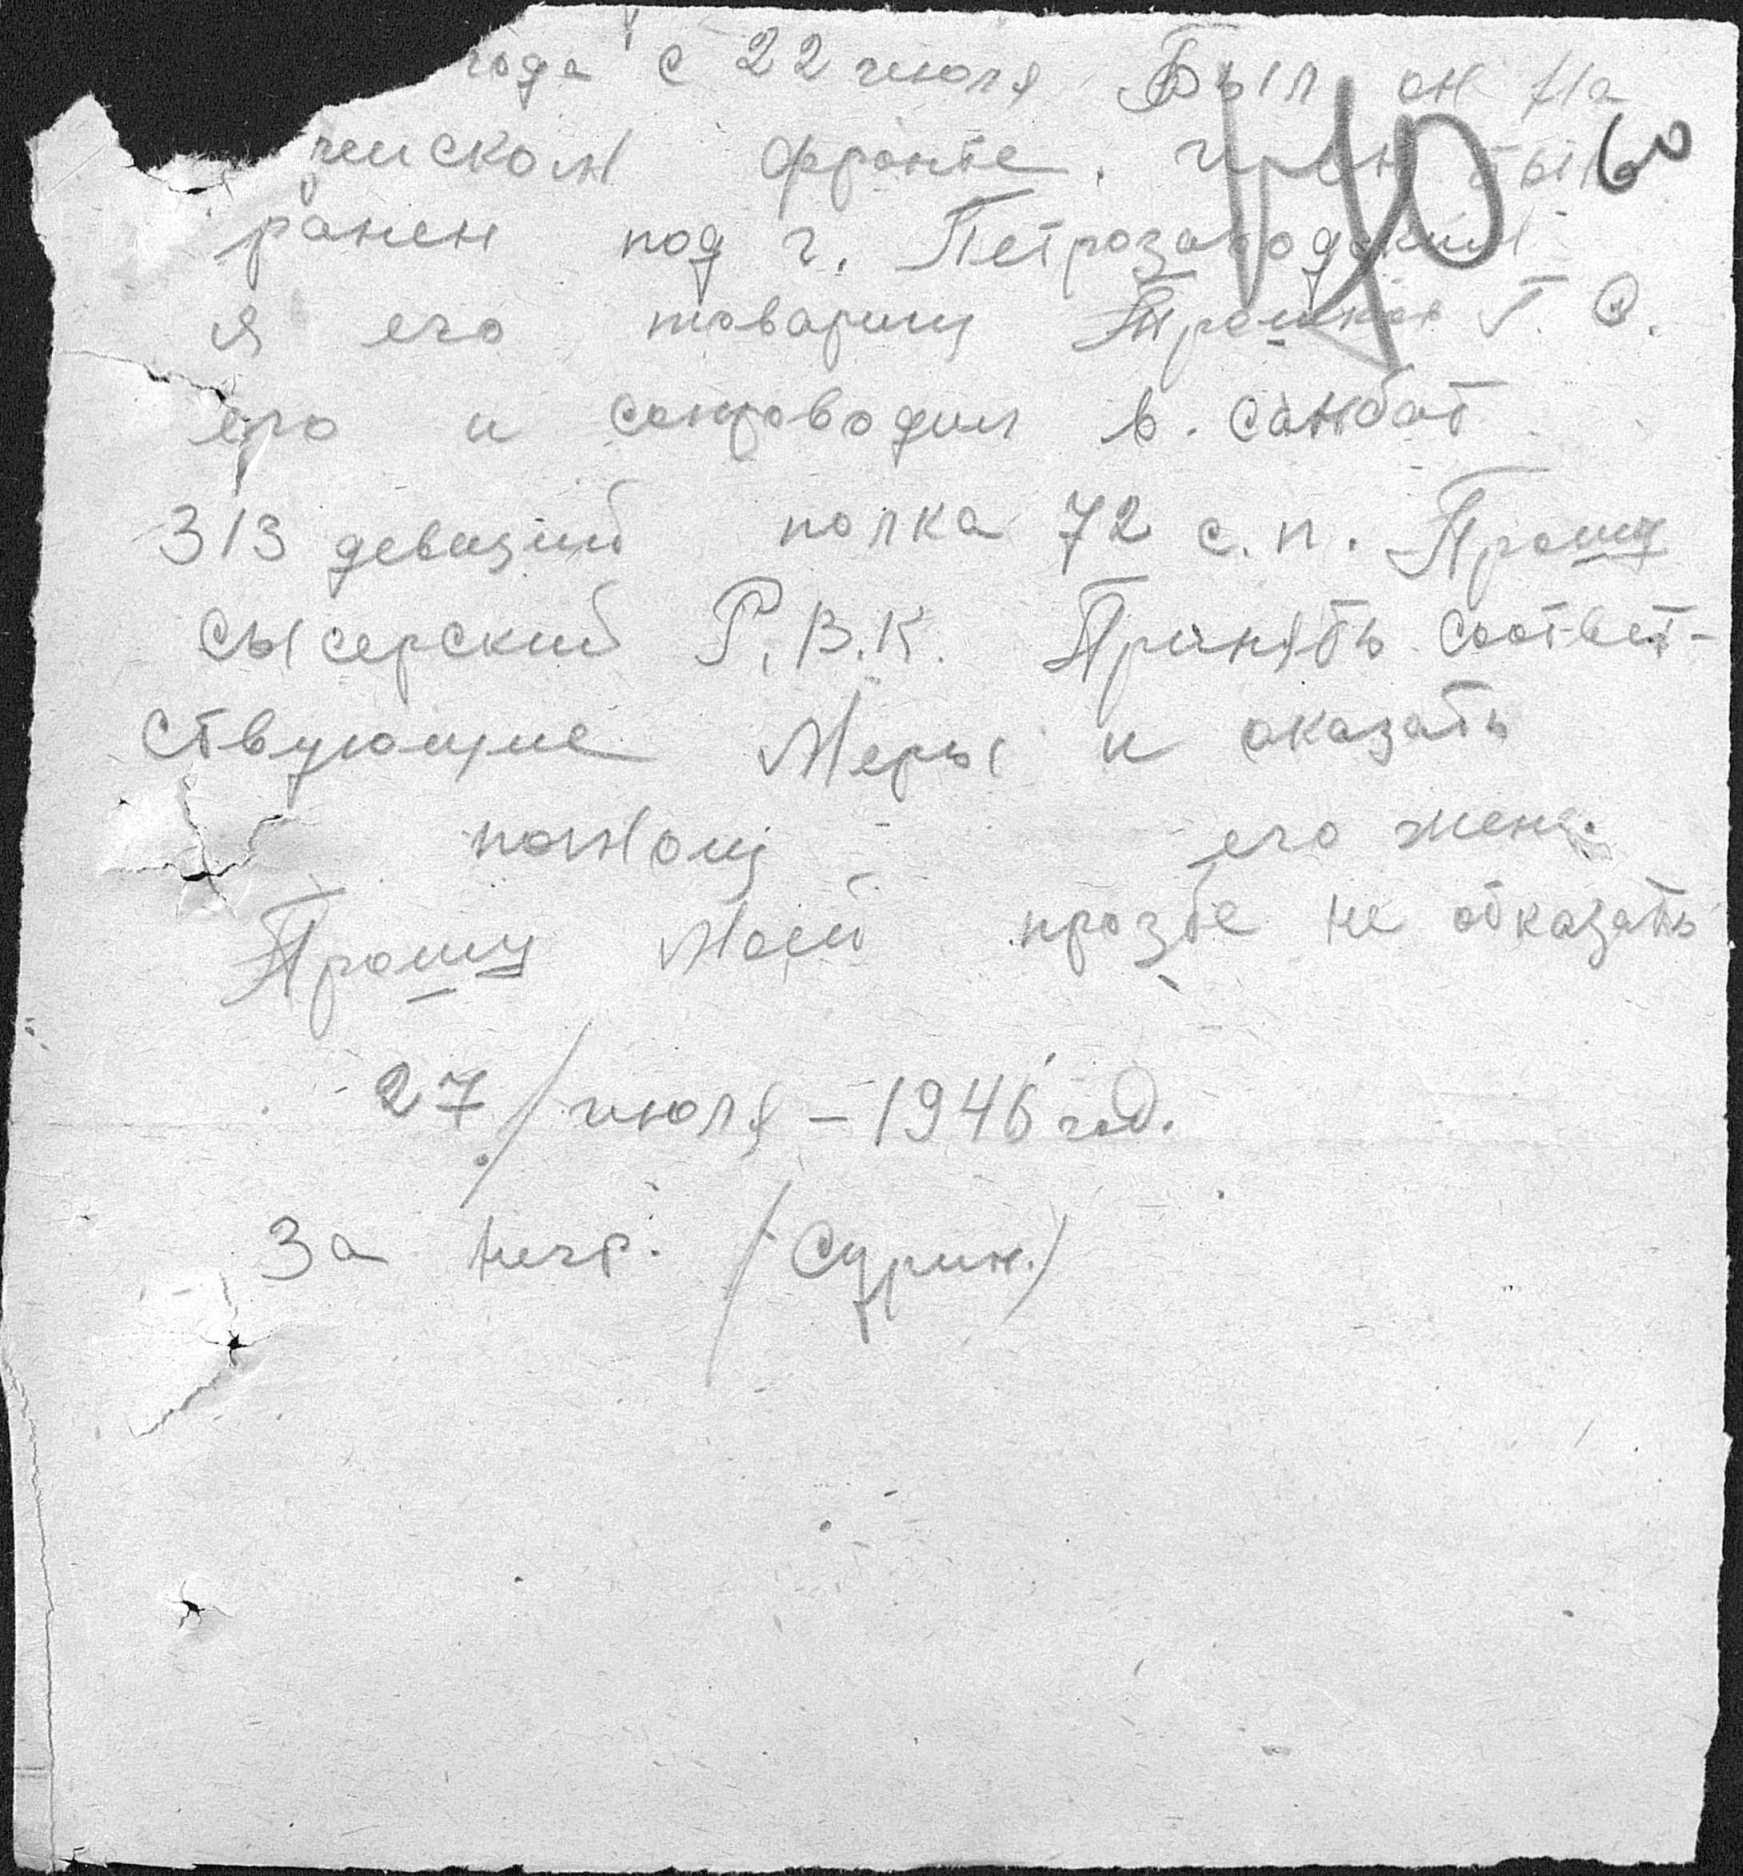 года с 22 июля Был он На
ческом фронте. и он был 60
ранен под г. Петрозаводским
я его товарищ Г. С.
его и сопроводил в. санбат
313 девизий полка 72 с. п. Прошу
Сысерский Р. В. К. Принять соответ-
ствующие Меры и оказать
помощ его жене.
Прошу Моей прозбе не отказать
27/июля – 1946 год.
За (Сурин.)